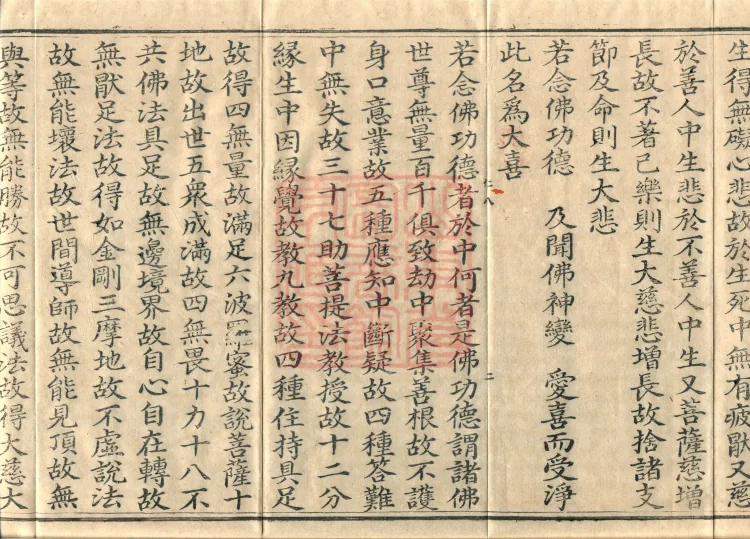 生得無礙心悲故於生死中無有疲猒又慈
於善人中生悲於不善人中生又菩薩慈增
長故不著己樂則生大慈悲增長故捨諸支
節及命則生大悲
若念佛功德　及聞佛神變　愛喜而受淨
此名爲大喜
若念佛功德者於中何者是佛功德謂諸佛
世尊無量百千俱致劫中聚集善根故不護
身口意業故五種應知中斷疑故四種答難
中無失故三十七助菩提法教授故十二分
緣生中因緣覺故教九教故四種住持具足
故得四無量故滿足六波羅蜜故說菩薩十
地故出世五衆成滿故四無畏十力十八不
共佛法具足故無邊境界故自心自在轉故
無猒足法故得如金剛三摩地故不虛說法
故無能壞法故世間導師故無能見頂故無
與等故無能勝故不可思議法故得大慈大